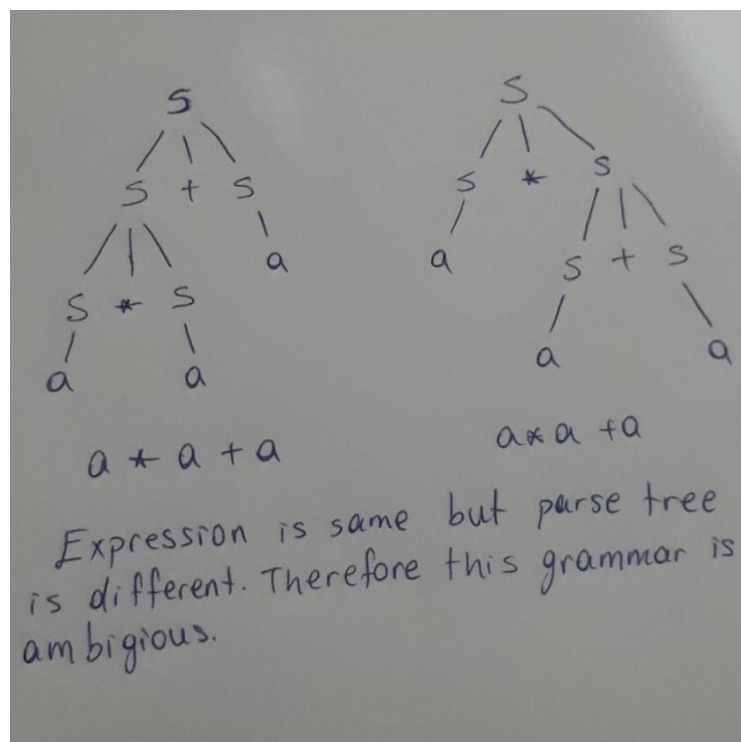 S S
S + S S * S
a a S + S
S * S
a a a a
a * a + a a * a + a
Expression is same but parse tree
is different. Therefore this grammar is
ambigious.